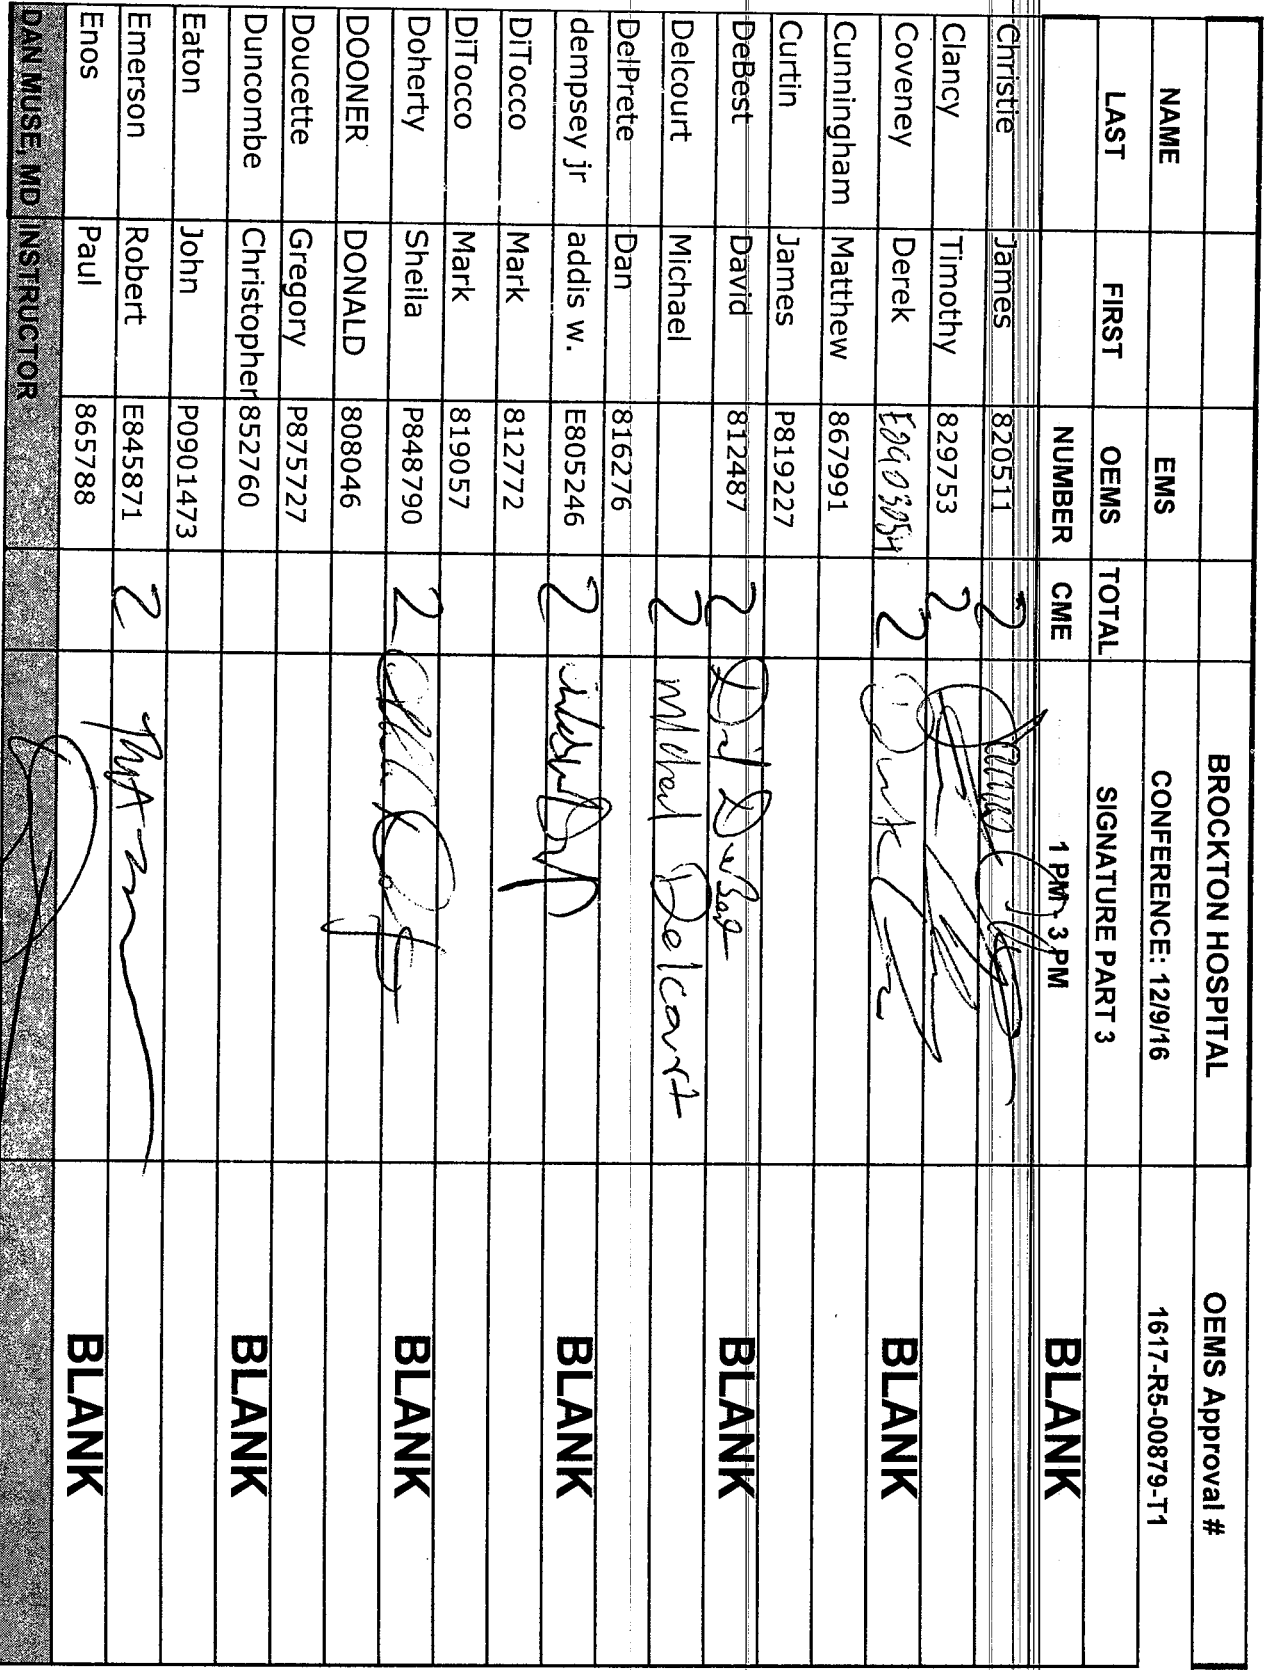 BROCKTON HOSPITAL OEMS Approval #
NAME EMS CONFERENCE: 12/9/16 1617-R5-00879-T1
LAST FIRST OEMS TOTAL SIGNATURE PART 3
NUMBER CME 1 PM - 3 PM BLANK
Christie James 820511 2
Clancy Timothy 829753 2
Coveney Derek 2 BLANK
Cunningham Matthew 867991
Curtin James P819227
DeBest David 812487 2 BLANK
Delcourt Michael 2 Michael Delcourt
DelPrete Dan 816276
dempsey jr addis w. E805246 2 BLANK
DiTocco Mark 812772
DiTocco Mark 819057
Doherty Sheila P848790 2 BLANK
DOONER DONALD 808046
Doucette Gregory P875727
Duncombe Christopher 852760 BLANK
Eaton John P0901473
Emerson Robert E845871 2
Enos Paul 865788 BLANK
DAN MUSE, MD INSTRUCTOR